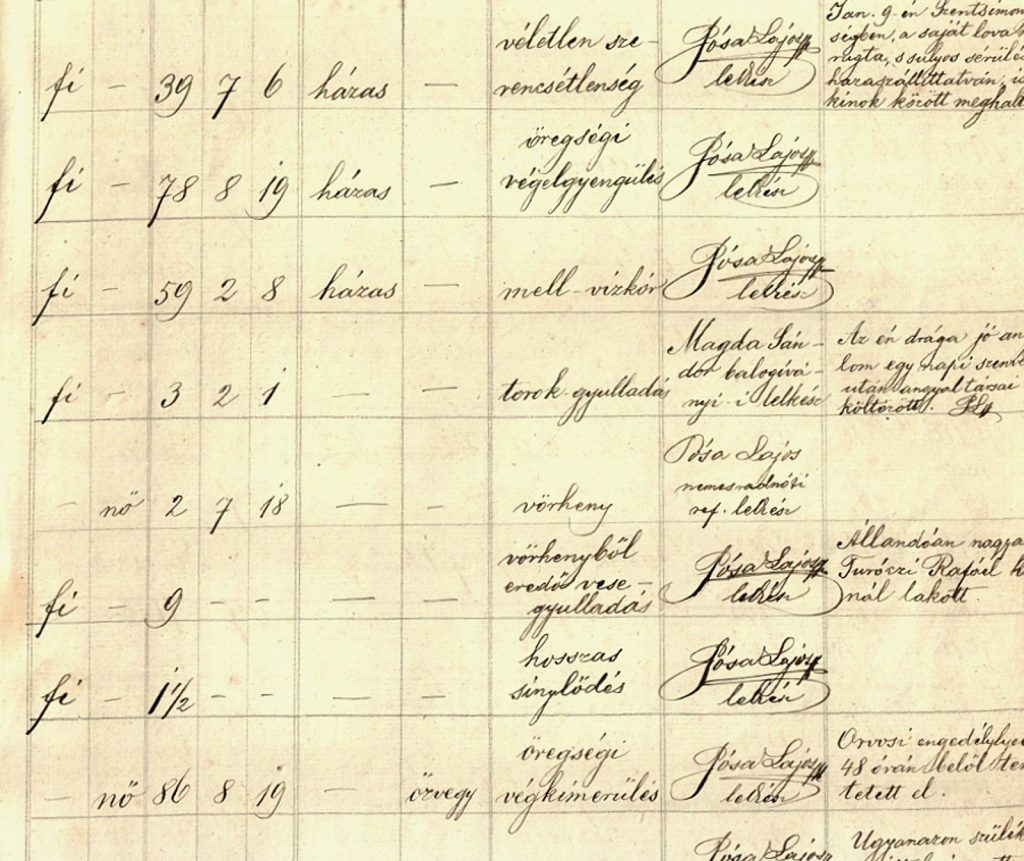 fi – 39 7 6 házas — véletlen sze-
rencsétlenség Pósa Lajos
lelkész Jan. 9-én Szentsimon
ségben, a saját lova
rugta, s sulyos sérülés
házaszállíttatván,
kinok között meghalt
fi – 78 8 19 házas — öregségi
végelgyengülés Pósa Lajos
lelkész
fi – 59 2 8 házas — mell-vizkór Pósa Lajos
lelkész
fi – 3 2 1 — — torok-gyulladás Magda Sán-
dor balogivá-
nyi-i lelkész Az én drága jó
lom egy napi
után angyal társai
költözött. PL
– nő 2 7 18 — — vörheny Pósa Lajos
nemesradnóti
ref. lelkész
fi – 9 – – — — vörhenyből
eredő vese-
gyulladás Pósa Lajos
lelkész Állandóan nagya
Turóczi Rafáel k
nál lakott.
fi – 1½ – – — — hosszas
sinylődés Pósa Lajos
lelkész
– nő 86 8 19 — özvegy öregségi
végkimerülés Pósa Lajos
lelkész Orvosi engedélylyel
48 órán belől tem
tetett el.
Pósa Lajos Ugyanazon szülék